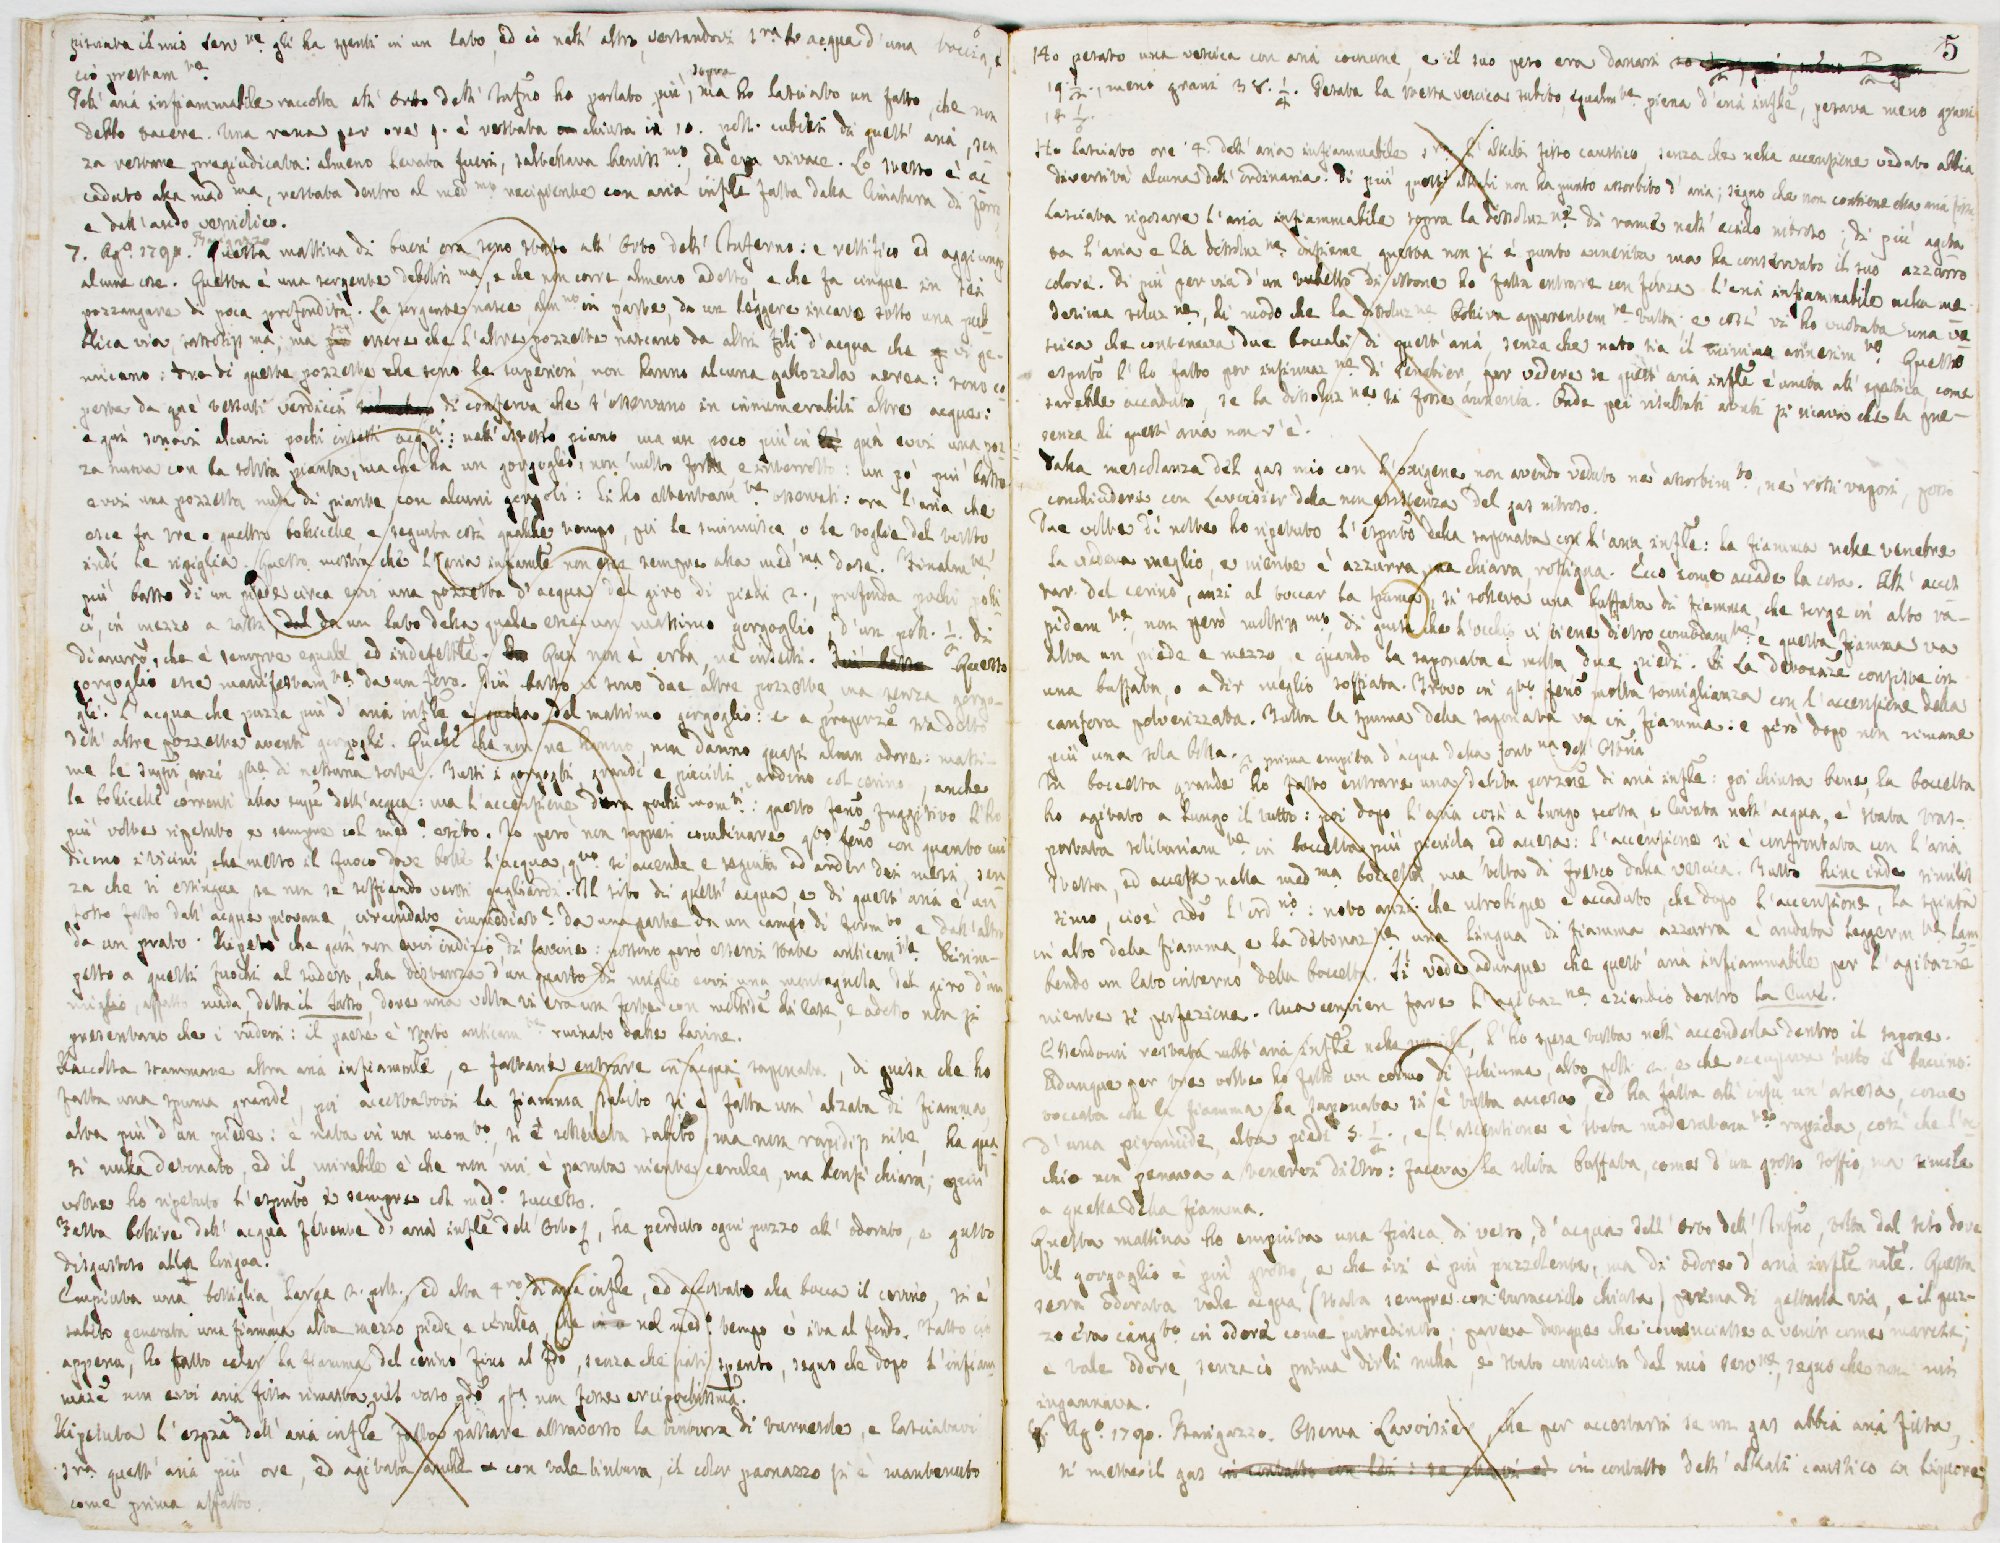 pisciava il mio serv.ne gli ha spenti in un lato, ed io nell' altro, versandovi s.ra acqua d'una boccia, e
ciò prestam.te
Dell' aria infiammabile raccolta all' Orto dell' Infno ho parlato più sopra, ma ho lasciato un fatto, che non
debbo tacere. Una rana per ore 9. è restata chiusa in 10. poll. cubici di quest' aria, sen
za restarne pregiudicata: almeno levata fuori, saltellava beniss.mo, ed era vivace. Lo stesso è ac
caduto alla med.ma, restata dentro al med.mo recipiente con aria infle fatta dalla limatura di ferro,
e dall' acido vetriolico.
7. Ag.o 1790. Barigazzo. Questa mattina di buon' ora sono stato all' Orto dell' Inferno: e rettifico ed aggiungo
alcune cose. Questa è una sorgente deboliss.ma, e che non corre almeno adesso, e che fa cinque in sei
pozzangare di poca profondità. La sorgente nasce, alm.no in parte, da un leggere incavo sotto una pub
blica via, sassosiss.ma; ma può essere che l'altre pozzette nascano da altri fili d'acqua che vi ge-
miccano: tre di queste pozzette che sono le superiori, non hanno alcuna gallozzola aerea: sono co
perte da que' vessuti verdicci di conferva che s'osservano in innumerabili altre acque:
e qui sonovi alcuni pochi insetti acq.ci: nell' istesso piano ma un poco più in là qui evvi una poz
za nuova con la solita pianta, ma che ha un gorgoglio, non molto forte, e interrotto: un po' più basso
evvi una pozzetta nuda di piante con alcuni gorgoli: li ho attentam.te osservati: ora l'aria che
esce fa tre o quattro bollicelle, e seguita così qualche tempo, poi le sminuisce, o le toglie del tutto
indi le ripiglia. Questo mostra che l'aria infiamle non esce sempre alla med.ma dose. Finalm.te
più basso di un piede circa evvi una pozzetta d'acqua del giro di piedi 2., profonda pochi polli
ci, in mezzo a sassi, da un lato della quale esce un massimo gorgoglio, d'un poll. 1/2. di
diametro, che è sempre eguale ed indefettibile. Qui non è erba, nè insetti. Questo
gorgoglio esce manifestam.te da un foro. Più basso vi sono due altre pozzette, ma senza gorgo-
gli. L'acqua che puzza più d'aria infle è quella del massimo gorgoglio: e a proporzne sta dello
dell' altre pozzette aventi gorgogli. Quelle che non ne hanno, non danno quasi alcun odore: massi-
me le supri, anzi que' di nessuna sorte. Tutti i gorgogli, grandi e piccioli, ardono col cerino, anche
le bollicelle correnti alla supfe dell'acqua: ma l'accensione dura pochi mom.ti: questo fenō fuggitivo l'ho
più volte ripetuto, e sempre col med.o esito. Io però non saprei combinare q.to fenō con quanto mi
dicono i vicini, che messo il fuoco dove bolle l'acqua, q.sto s'accende e seguita ad arder dei mesi, sen
za che si estingua, se non se soffiando venti gagliardi. Il sito di quest' acqua, e di quest' aria è un
fosso fatto dall' acque piovane, circondato immediat.e da una parte da un campo di form.to e dall'altra
da un prato. Ripeto che qui non evvi indizio di lavine: possono però esservi state anticam.te Dirim-
petto a questi fuochi al sudest, alla distanza d'un quarto di miglio evvi una montagnola del giro d'un
miglio, affatto nuda, detta il Sasso, dove una volta vi era un forte con moltid.e di case, e adesso non si
presentano che i ruderi: il paese è stato anticam.te ruinato dalle lavine.
Raccolta stammane altra aria infiammle, e fattane entrare in acqua saponata, di guisa che ho
fatta una spuma grande, poi accostatovi la fiamma, subito si è fatta un' alzata di fiamma
alta più d'un piede: è nata in un mom.to, si è sollevata subito, ma non rapidiss.nte, ha qua
si nulla detonato, ed il mirabile è che non mi è paruta niente cerulea, ma bensì chiara; quin
oltre ho ripetuto l'esprnto e sempre col med.o successo.
Fatta bollire dell' acqua fetente d'aria infle dell' Orto, ha perduto ogni puzzo all' odorato, e gusto
disgustoso alla lingua.
Empiuta una bottiglia, larga 2. poll. ed alta 4.ro di aria infle, ed accostato alla bocca il cerino, si è
subito generata una fiamma alta mezzo piede e cerulea, che nel med.o tempo è ita al fondo. Fatto ciò
appena, ho fatto calar la fiamma del cerino fino al fdo, senza che siasi spento, segno che dopo l'infiam
mazne non evvi aria fissa rimasta nel vaso qdo q.ta non fosse in pochissima.
Ripetuta l'esprza dell' aria infle fatta passare attraverso la tintura di turnesole, e lasciatavi
s.ra quest' aria più ore, ed agitata anche con tale tintura, il color paonazzo si è mantenuto
come prima affatto.
5
Ho pesato una vescica con aria comune, e il suo peso era danari
19 1/2., meno grani 38. 1/4. Pesata la stessa vescica subito, egualm.te piena d'aria infle, pesava meno grani
14 1/2.
Ho lasciato ore 4. dell' aria infiammabile s.ra l'alkali fisso caustico, senza che nella accensione veduto abbia
diversità alcuna dall' ordinaria. Di più questi alkali non ha punto assorbito d'aria; segno che non contiene ella aria fissa.
Lasciata riposare l'aria infiammabile sopra la dissoluz.ne di rame nell' acido nitroso; di più agita
ta l'aria e la dissoluz.ne insieme, questa non si è punto annerita ma ha conservato il suo azzurro
colore. Di più per via d'un tubetto di ottone ho fatta entrare con forza l'aria infiammabile nella me-
desima soluz.ne, di modo che la dissoluz.ne bolliva apparentem.te tutta; e così vi ho vuotata una ve
scica che conteneva due boccali di quest' aria, senza che nato sia il minimo annerim.to. Questo
esprnto l'ho fatto per insinuaz.ne di Senebier, per vedere se quest' aria infle è unita all' epatica, come
sarebbe accaduto, se la dissoluz.ne si fosse annerita. Onde pei risultati avuti si ricava che la pre-
senza di quest' aria non v'è.
Dalla mescolanza del gas mio con l'ossigene non avendo veduto nè assorbim.to, nè rossi vapori, posso
conchiudere con Lavoisier della non esistenza del gas nitroso.
Due volte di notte ho ripetuto l'esprnto della saponata con l'aria infle: la fiamma nelle tenebre
si vedeva meglio, e niente è azzurra, ma chiara, rossigna. Ecco come accade la cosa. All' acco
star del cerino, anzi al toccar la spuma, si solleva una buffata di fiamma, che sorge in alto ra-
pidam.te non però moltiss.mo, di guisa che l'occhio vi tiene dietro comodam.te e questa fiamma va
alta un piede e mezzo, e quando la saponata è molta due piedi. La detonazne consiste in
una buffata, o a dir meglio soffiata. Trovo in q.to fenō molta somiglianza con l'accensione della
canfora polverizzata. Tutta la spuma della saponata va in fiamma: e però dopo non rimane
più una sola bolla.
In boccetta grande prima empita d'acqua della font.na dell' Ostria ho fatto entrare una debita porzne di aria infle: poi chiusa bene la boccetta
ho agitato a lungo il tutto: poi dopo l'aria così a lungo scossa e lavata nell' acqua, è stata tras-
portata solitariam.te in boccetta più piccola ed accesa: l'accensione si è confrontata con l'aria
stessa, ed accesa nella med.ma boccetta ma tolta di fresco dalla vescica. Tutto hinc inde similis
simo, cioè sdo l'ord.rio: noto anzi che utrobique è accaduto, che dopo l'accensione, la spinta
in alto della fiamma, e la detonaz.ne, una lingua di fiamma azzurra è andata leggerm.te lam
bendo un lato interno della boccetta. Si vede adunque che quest' aria infiammabile per l'agitazne
niente si perfeziona. Ma convien fare l'agitaz.ne eziandio dentro la Luce.
Essendomi restata molt' aria infle nella vescica, l'ho spesa tutta nell' accenderla dentro il sapone.
Adunque per tre volte ho fatto un colmo di schiuma, alto poll. 2. e che occupava tutto il bacino:
toccata con la fiamma la saponata si è tutta accesa ed ha fatta all' insù un' ascesa, come
d'una piramide, alta piedi 3. 1/2., e l'ascensione è stata moderatam.te rapida, così che l'oc
chio non penava a tenervi dietro: faceva la solita buffata, come d'un grosso soffio, ma simile
a quella della fiamma.
Questa mattina ho empiuta una fiasca di vetro, d'acqua dell' Orto dell' Infno, tolta dal sito dove
il gorgoglio è più grosso, e che ivi è più puzzolente, ma di odore d'aria infle nate. Questa
sera odorata tale acqua (stata sempre con turacciolo chiusa) prima di gettarla via, e il puz-
zo era cang.to in odore come putredinoso; pareva dunque che cominciasse a venir come marcia;
e tale odore, senza io prima dirli nulla, è stato conosciuto dal mio serv.ne, segno che non mi
ingannava.
8. Ag.o 1790. Barigazzo. Osserva Lavoisier, che per accertarsi se un gas abbia aria fissa,
si mette il gas in contatto dell' alkali caustico in liquore;